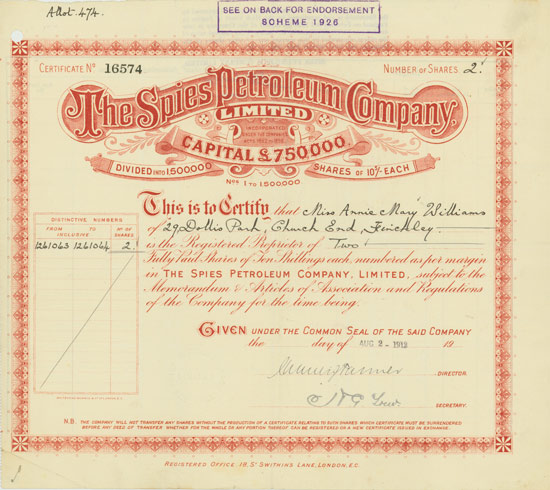 Allot 474.
SEE ON BACK FOR ENDORSEMENT
SCHEME 1926
CERTIFICATE No 16574
NUMBER OF SHARES 2.
The Spies Petroleum Company,
LIMITED
INCORPORATED
UNDER THE COMPANIES
CAPITAL £750,000.
DIVIDED INTO 1,500,000 SHARES OF 10/- EACH
Nos 1 TO 1,500,000
This is to Certify that Miss Annie Mary Williams
of 29, Dollis Park, Church End, Finchley.
is the Registered Proprietor of Two
Fully Paid Shares of Ten Shillings each, numbered as per margin
in THE SPIES PETROLEUM COMPANY, LIMITED, subject to the
Memorandum & Articles of Association and Regulations
of the Company for the time being.
DISTINCTIVE NUMBERS
FROM TO
INCLUSIVE
No OF SHARES
1261063 1261064 2
GIVEN UNDER THE COMMON SEAL OF THE SAID COMPANY
the day of AUG 2 - 1912 19
DIRECTOR.
SECRETARY.
N.B. THE COMPANY WILL NOT TRANSFER ANY SHARES WITHOUT THE PRODUCTION OF A CERTIFICATE RELATING TO SUCH SHARES, WHICH CERTIFICATE MUST BE SURRENDERED
BEFORE ANY DEED OF TRANSFER WHETHER FOR THE WHOLE OR ANY PORTION THEREOF CAN BE REGISTERED OR A NEW CERTIFICATE ISSUED IN EXCHANGE.
REGISTERED OFFICE, 18, St SWITHINS LANE, LONDON, E.C.